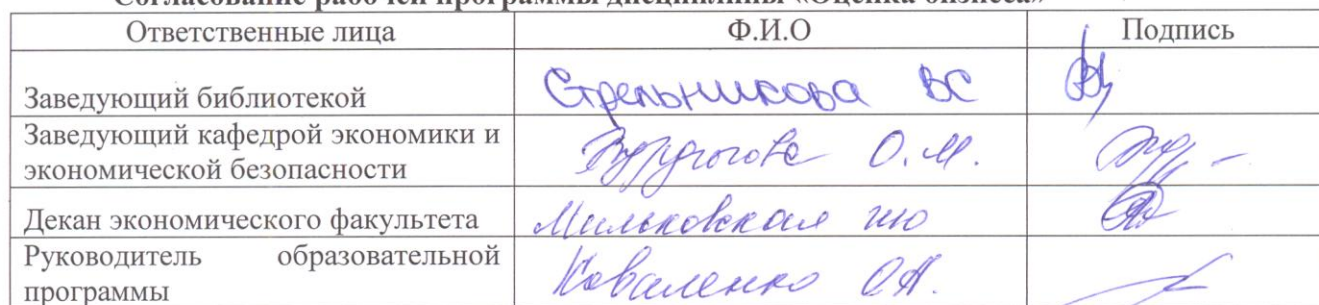 Согласование рабочей программы дисциплины «Оценка бизнеса»
Ответственные лица Ф.И.О Подпись
Заведующий библиотекой Стрельникова ВС
Заведующий кафедрой экономики и
экономической безопасности О.М.
Декан экономического факультета Мильковская
Руководитель образовательной
программы Коваленко О.А.